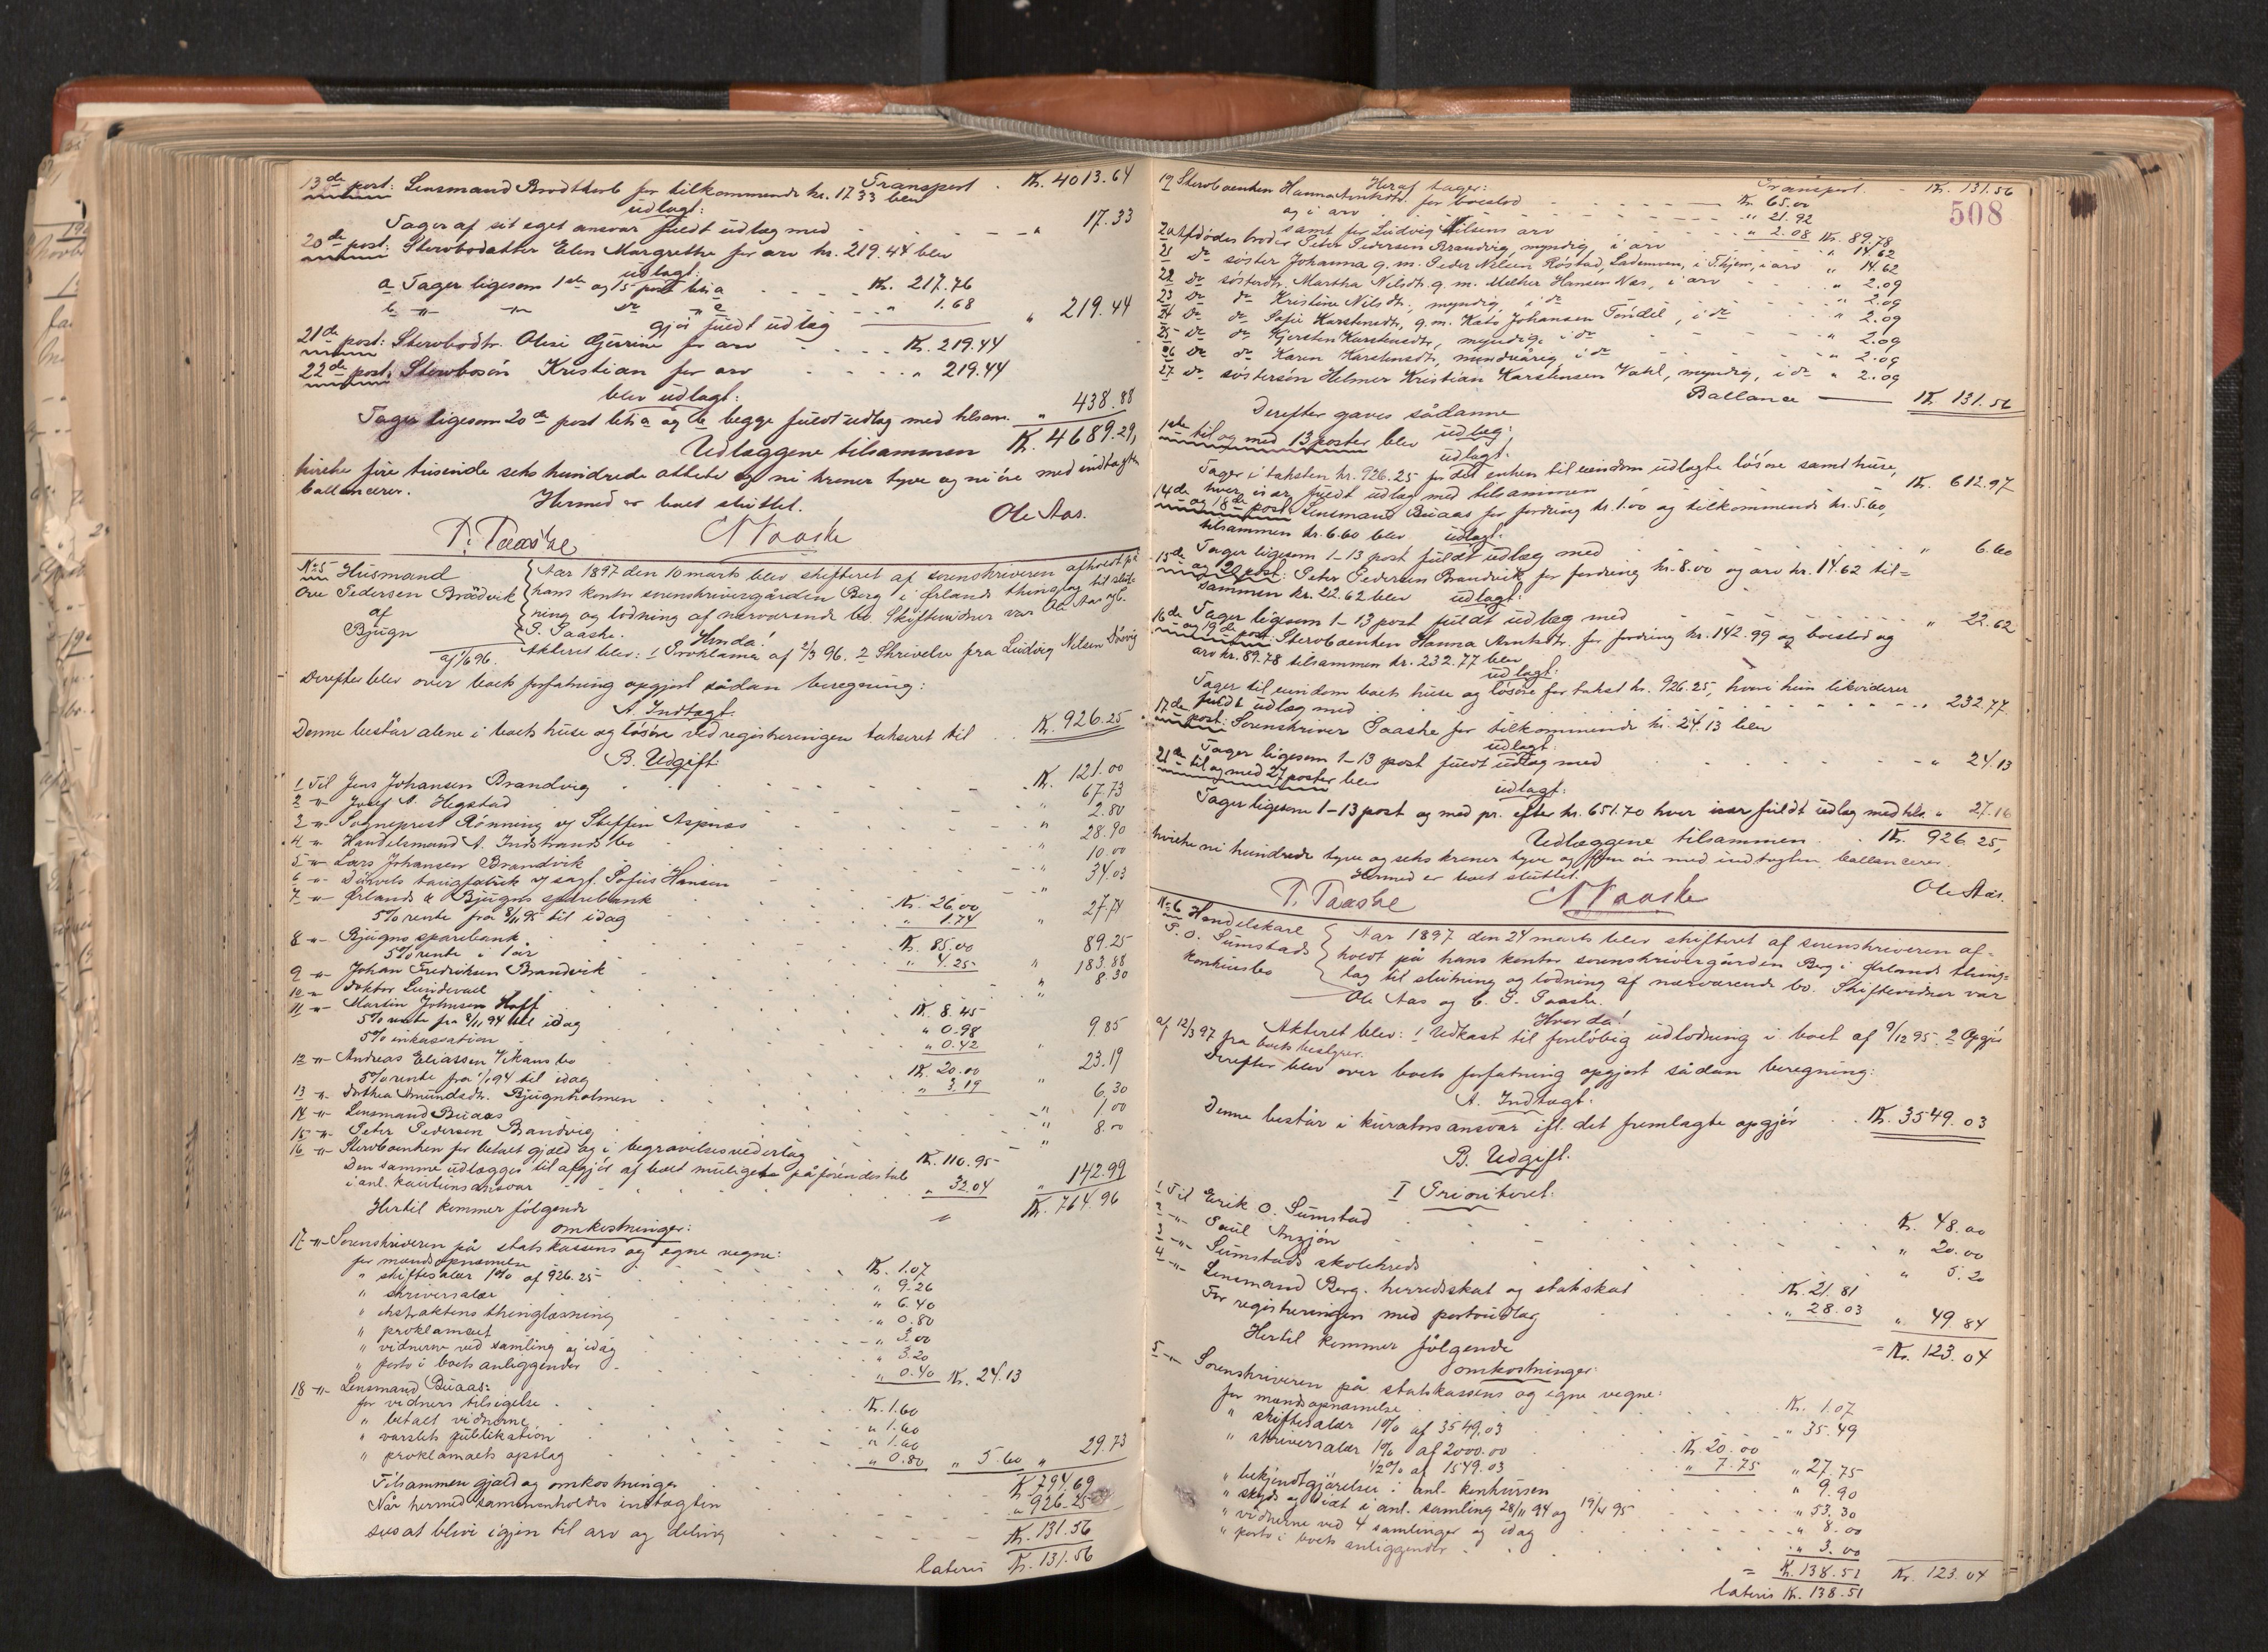 Transport . Kr. 4013.64
13de post: Lensmand Brodtkorb for tilkommende kr. 17.33 blev
udlagt:
Tager af sit eget ansvar fuldt udlæg med " 17.33
20de post: Stervbodatter Elen Margrethe for arv kr. 219.44 blev
udlagt:
a Tager ligesom 1ste og 15 post litr. a Kr. 217.76
b " " do " e " 1.68
gjør fuldt udlæg " 219.44
21de post: Stervbodtr. Oline Gurine for arv Kr. 219.44
22de post: Stervbosøn Kristian for arv " 219.44
blev udlagt:
Tager ligesom 20de post litr. a og b begge fuldt udlæg med tilsam. " 438.88
Udlæggene tilsammen Kr. 4689.29,
hvilke fire tusinde seks hundrede ottete og ni kroner tyve og ni øre med indtægten
ballancerer.
Hermed er boet sluttet.
P. Paaske N Paaske Ole Aas.
No 5 Husmand
Ove Pedersen Brødvik
af
Bjugn
Aar 1897 den 10 marts blev skifteret af sorenskriveren afholdt på
hans kontor sorenskrivergården Berg i Ørlands thinglag til slut-
ning og lodning af nærværende bo. Skiftevidner var Ole Aas og C.
P. Paaske.
Hvorda!
Akteret blev: 1 Proklama af 2/3 96. 2 Skrivelse fra Ludvig Nilsen
af 1/6 96.
Derefter blev over boets forfatning opgjort sådan beregning:
A. Indtægt.
Denne består alene i boets huse og løsøre ved registreringen takseret til . . Kr. 926.25
B. Udgift:
1 Til Jens Johansen Brandvig Kr. 121.00
2 " Josef A. Hegstad " 67.73
3 " Sogneprest Rønning og Steffen Aspnes " 2.80
4 " Handelsmand A. Indstrands bo " 28.90
5 " Lars Johansen Brandvik " 10.00
6 " Djuvels tangfabrik v/ sagf. Sofus Hansen " 34.03
7 " Ørlands & Bjugns sparebank Kr. 26.00
5% rente fra 8/11 95 til idag " 1.74 " 27.74
8 " Bjugns sparebank Kr. 85.00
5% rente i 1 år " 4.25 " 89.25
9 " Johan Fredriksen Brandvik " 183.88
10 " Doktor Lundevall " 8.30
11 " Martin Johnsen Hoff Kr. 8.45
5% rente fra 8/11 94 til idag " 0.98
5% inkassation " 0.42 " 9.85
12 " Andreas Eliassen Vikans bo Kr. 20.00
5% rente fra 1/1 94 til idag " 3.19 " 23.19
13 " Dorthea Amundsdtr. Bjugnholmen " 6.30
14 " Lensmand Buaas " 1.00
15 " Peter Pedersen Brandvig " 8.00
16 " Stervboenken for betalt gjæld og i begravelsesvederlag Kr. 110.95
Den samme udlægges til afgjør af boet muligens påførende tab
i anl. kautionsansvar " 32.04 " 142.99
= Kr. 764.96
Hertil kommer følgende
omkostninger:
17 " Sorenskriveren på statskassens og egne vegne:
for mandsopnævnelse Kr. 1.07
" skiftesalær 1% af 926.25 " 9.26
" skriversalær " 6.40
" ekstraktens thinglæsning " 0.80
" proklamaet " 3.00
" vidnerne ved samling og idag " 3.20
" porto i boets anliggender " 0.40 Kr. 24.13
18 " Lensmand Buaas:
for vidners tilsigelse Kr. 1.60
" betalt vidnerne " 1.60
" varslets publikation " 1.60
" proklamaets opslag " 0.80 " 5.60 " 29.73
Tilsammen gjæld og omkostninger Kr. 794.69
Når hermed sammenholdes indtægten " 926.25
sees at blive igjen til arv og deling Kr. 131.56
lateris Kr. 131.56
Transport. Kr. 131.56
508
Heraf tager:
19 Stervboenken Hanna Arntsdtr. for boeslod Kr. 65.00
og i arv " 21.92
samt for Ludvig Nilsens arv " 2.08 Kr. 89.78
20 Afdødes broder Peter Pedersen Brandvig, myndig, i arv " 14.62
21 do søster Johanna g. m. Peder Nilsen Røstad, Lademoen, i T.hjem, i arv " 14.62
22 do søsterdtr. Martha Nilsdtr. g. m. Melker Hansen Nes, i arv " 2.09
23 do do Kristine Nilsdtr., myndig, i do " 2.09
24 do do Sofie Karstensdtr., g. m. Kato Johansen Tøndel, i do " 2.09
25 do do Kjersten Karstensdtr., myndig, i do " 2.09
26 do do Karen Karstensdtr., mindreårig, i do " 2.09
27 do søstersøn Helmer Kristian Karstensen Vahl, myndig, i do " 2.09
Ballance Kr. 131.56
Derefter gaves sådanne
udlæg:
1ste til og med 13 poster blev
udlagt:
Tager i taksten kr. 926.25 for det enken til eiendom udlagte løsøre samt huse,
hver især fuldt udlæg med tilsammen Kr. 612.97
14de og 18de post: Lensmand Buaas for fordring kr. 1.00 og tilkommende kr. 5.60,
tilsammen kr. 6.60 blev udlagt:
Tager ligesom 1-13 post fuldt udlæg med " 6.60
15de og 20 post: Peter Pedersen Brandvik for fordring kr. 8.00 og arv kr. 14.62 til-
sammen kr. 22.62 blev udlagt:
Tager ligesom 1-13 post fuldt udlæg med " 22.62
16de og 19de post: Stervboenken Hanna Arntsdtr. for fordring kr. 142.99 og boeslod og
arv kr. 89.78 tilsammen kr. 232.77 blev
udlagt:
Tager til eiendom boets huse og løsøre for takst kr. 926.25, hvori hun likviderer
fuldt udlæg med " 232.77
17de post: Sorenskriver Paaske for tilkommende kr. 24.13 blev
udlagt:
Tager ligesom 1-13 post fuldt udlæg med " 24.13
21de til og med 27 poster blev
udlagt:
Tager ligesom 1-13 post og med pr. efter kr. 651.70 hver især fuldt udlæg med tils. " 27.16
Udlæggene tilsammen . Kr. 926.25,
hvilke ni hundrede tyve og seks kroner tyve og fem øre med indtægten ballancerer.
Hermed er boet sluttet.
P. Paaske N Paaske Ole Aas.
No 6 Handelskarl
P. O. Sumstads
konkursbo
Aar 1897 den 24 marts blev skifteret af sorenskriveren af-
holdt på hans kontor sorenskrivergården Berg i Ørlands thing-
lag til slutning og lodning af nærværende bo. Skiftevidner var
Ole Aas og C. P. Paaske.
Hvorda!
Akteret blev: 1 Udkast til foreløbig udlodning i boet af 9/12 95. 2 Opgjør
af 12/3 97 fra boets bestyrer.
Derefter blev over boets forfatning opgjort sådan beregning:
A. Indtægt:
Denne består i kurators ansvar ifl. det fremlagte opgjør . . Kr. 3549.03
B. Udgift.
I Prioriteret:
1 Til Erik O. Sumstad Kr. 48.00
2 " Paul Anzjøn " 20.00
3 " Sumstads skolekreds " 5.20
4 " Lensmand Berg. herredsskat og statsskat Kr. 21.81
For registreringen med portoudlæg " 28.03 " 49.84
= Kr. 123.04
Hertil kommer følgende
omkostninger:
5 " Sorenskriveren på statskassens og egne vegne:
for mandsopnævnelse Kr. 1.07
" skiftesalær 1% af 3549.03 " 35.49
" skriversalær 1% af 2000.00 Kr. 20.00
1/2% af 1549.03 " 7.75 " 27.75
" bekjendtgjørelser i anl. konkursen " 9.90
" skyds og diæt i anl. samling 28/11 94 og 19/11 95 " 53.30
" vidnerne ved 4 samlinger og idag " 8.00
" porto i boets anliggender " 3.00
= Kr. 138.51 Kr. 123.04
lateris Kr. 138.51